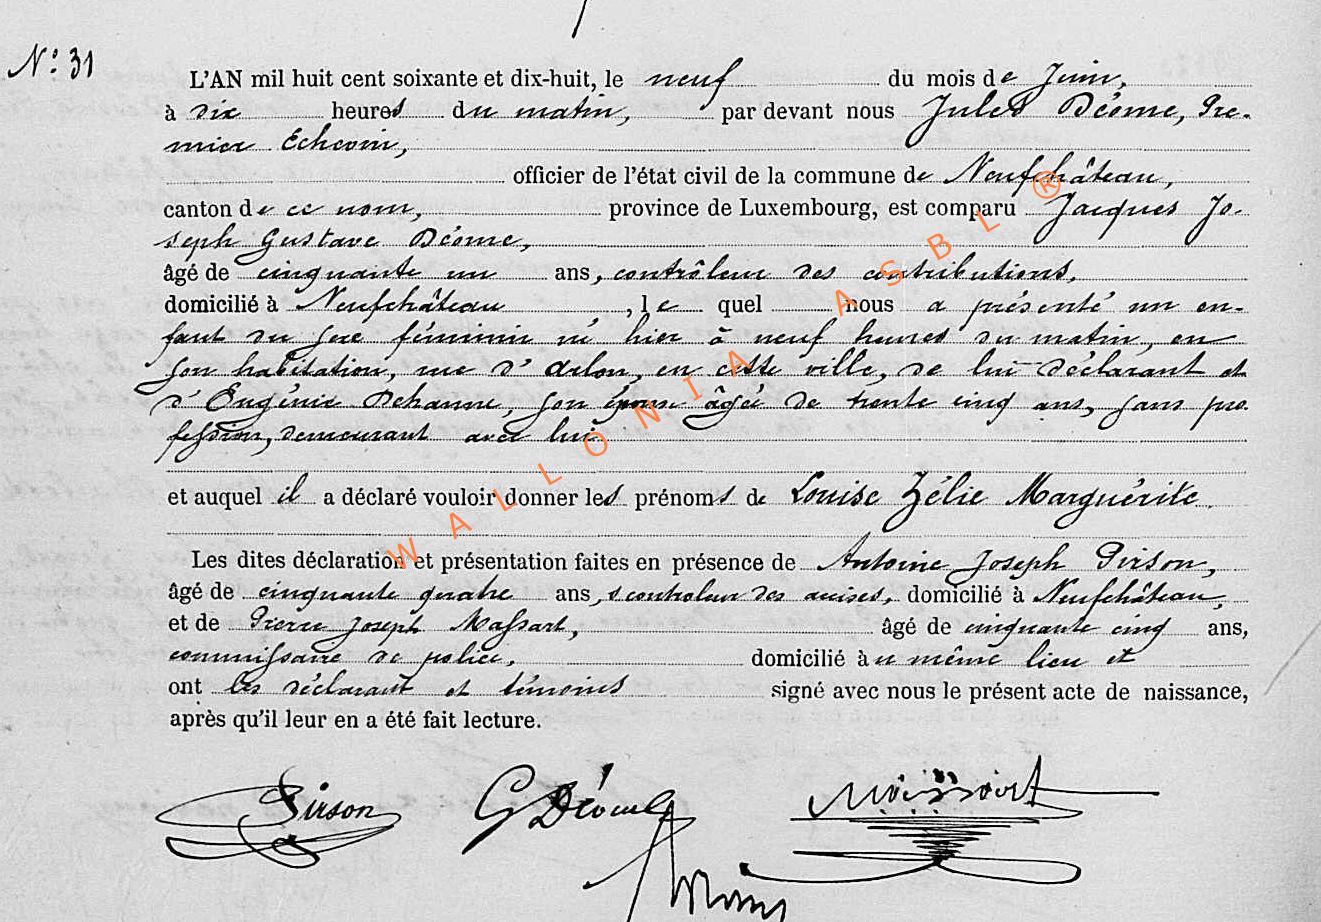 N° 31
L'AN mil huit cent soixante et dix-huit, le neuf du mois de Juin,
à dix heures du matin, par devant nous Jules Déome, Pre-
mier Echevin,
officier de l'état civil de la commune de Neufchâteau,
canton de ce nom, province de Luxembourg, est comparu Jacques Jo-
seph Gustave Déome,
âgé de cinquante un ans, contrôleur des contributions,
domicilié à Neufchâteau, le quel nous a présenté un en-
fant du sexe féminin né hier à neuf heures du matin, en
son habitation, rue d'Arlon, en cette ville, de lui déclarant et
d'Eugénie Dehanne, son épouse âgée de trente cinq ans, sans pro
fession, demeurant avec lui
et auquel il a déclaré vouloir donner les prénoms de Louise Zélie Marguérite
Les dites déclaration et présentation faites en présence de Antoine Joseph Pirson,
âgé de cinquante quatre ans, controleur des accises, domicilié à Neufchâteau,
et de Pierre Joseph Massart, âgé de cinquante cinq ans,
commissaire de police, domicilié au même lieu et
ont les déclarant et témoins signé avec nous le présent acte de naissance,
après qu'il leur en a été fait lecture.
Pirson G Déome Massart
WALLONIA ASBL ®